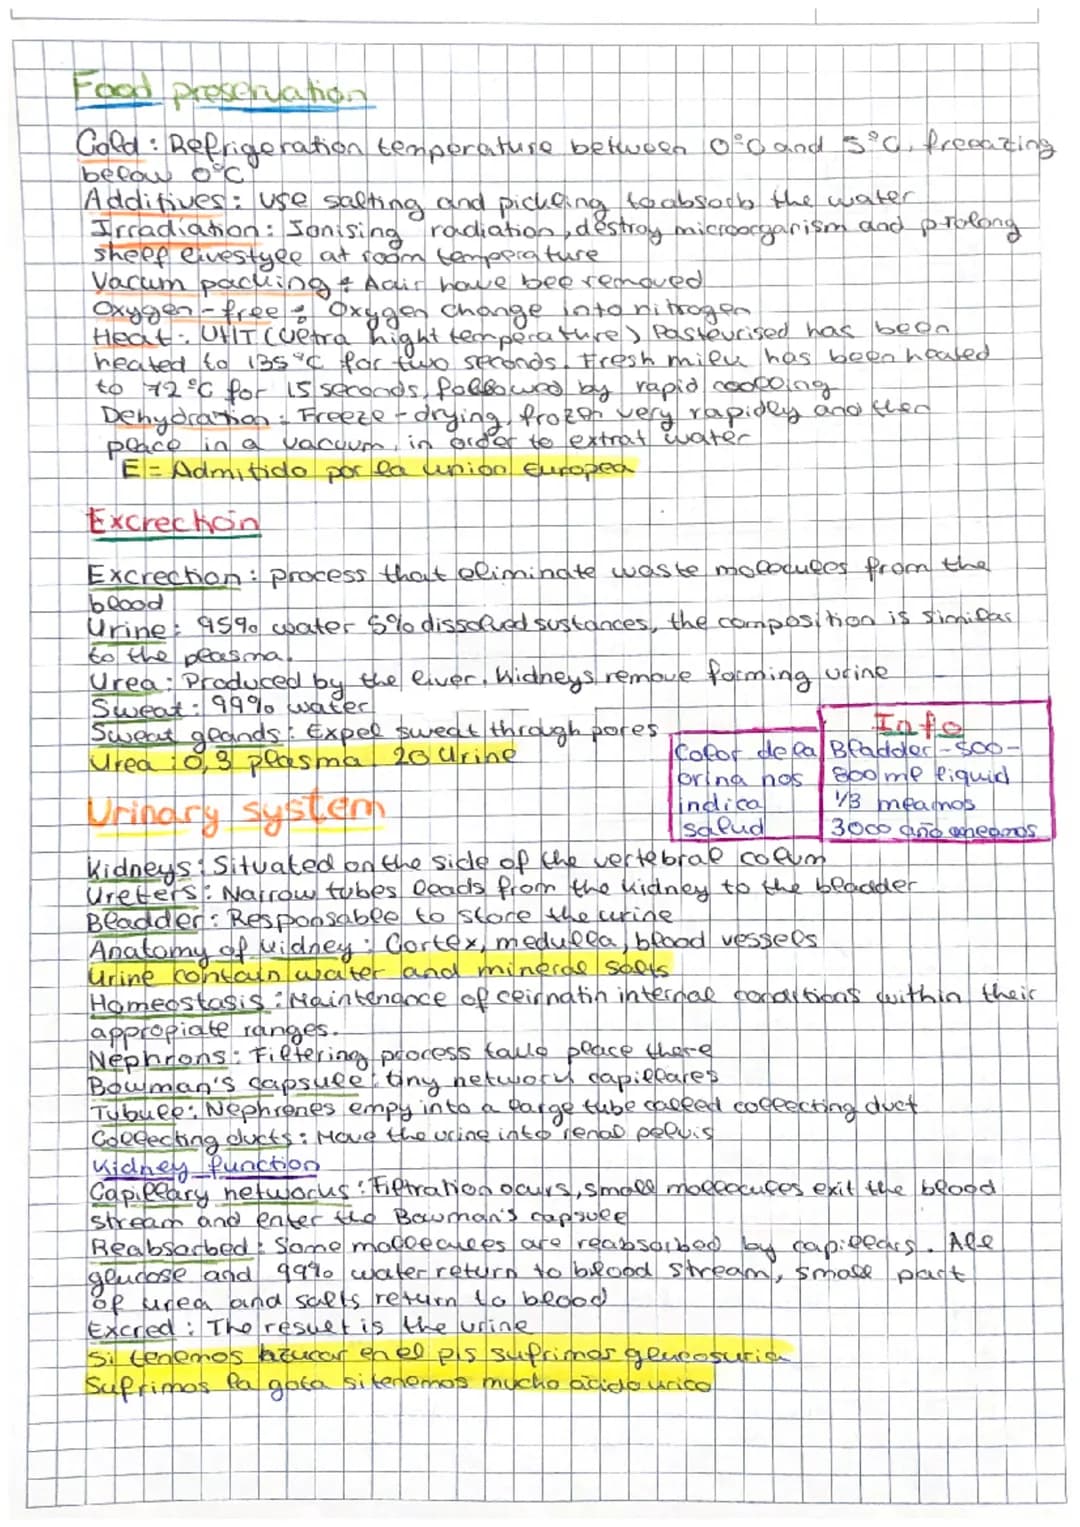 Food preservation
Cold: Refrigeration temperature between 0ºC and 5ºC, freeazing
below 0ºC
Additives: use salting and pickling to absorb the water
Irradiation: Ionising radiation, destroy microorganism and prolong
shelf livestyle at room temperature
Vacum packing: Aair have bee removed
Oxygen-free: Oxygen change into nitrogen
Heat: UHT (Ultra hight temperature) Pasteurised has been
heated to 135ºC for two seconds. Fresh milk has been heated
to 72ºC for 15 seconds, followed by rapid coooling
Dehydration: Freeze-drying, frozen very rapidly and then
place in a vacuum, in order to extrat water
E = Admitido por la union Europea
Excrection
Excrection: process that eliminate waste molocules from the
blood
Urine: 95% water 5% dissolved sustances, the composition is similar
to the plasma.
Urea: Produced by the liver. Kidneys remove forming urine
Sweat: 99% water
Sweat glands: Expel sweat through pores
Urea: 0,3 plasma 20 Urine
Color de la
orina nos
indica
salud
Info
Bladder - 500-
800 ml liquid
1/3 meamos
3000 año meamos
Urinary system
Kidneys: Situated on the side of the vertebral colum
Ureters: Narrow tubes leads from the kidney to the bladder
Bladder: Responsable to store the urine
Anatomy of kidney: Cortex, medulla, blood vessels
Urine contain water and mineral salts
Homeostasis: Maintenance of internal conditions within their
appropiate ranges.
Nephrons: Filtering process take place there
Bowman's capsule: tiny network capillares
Tubule: Nephrones empy into a large tube called collecting duct
Collecting ducts: Move the urine into renal pelvis
Kidney function
Capillary networks: Filtration ocurs, small mollocules exit the blood
stream and enter the Bowman's capsule
Reabsorbed: Some mollecules are reabsorbed by capillars. All
glucose and 99% water return to blood stream, small part
of urea and salts return to blood
Excred: The result is the urine
Si tenemos azucar en el pis sufrimos glucosuria
Sufrimos la gota si tenemos mucho ácido urico